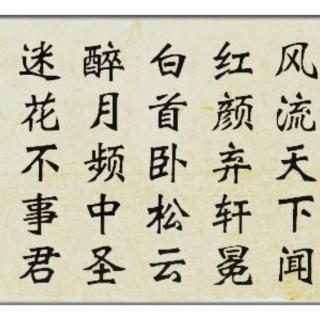 风流天下闻
红颜弃轩冕
白首卧松云
醉月频中圣
迷花不事君